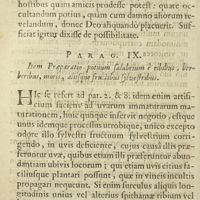 hostibus quam amicis prodesse potest: quare oc-
cultandum potius, quàm cum damno aliorum re-
velandum, donec Deo aliquando placuerit. Suf-
ficiat igitur dixisse de possibilitate.
PARAG. IX.
Item Præparatio potuum salubrium è ribibus, ber-
beribus, moris, aliisque fructibus sylvestribus.
HIc se refert ad par. 2. & 8. idem enim artifi-
cium faciens ad uvarum immaturarum matu-
rationem, huic quoque inservit negotio, estque
unus idemque processus utrobique, unico excepto
odore illo sylvestri fructum sylvestrium corri-
gendo, in uvis deficiente, cujus causâ præferun-
tur uvæ, quibus etsam illi præferuntur ob abun-
dantiam ubivis locorum; qui etiam uvis citius fa-
cilimusque plantantur, quia in vineis incultis
propagari nequeunt. Si enim surculus aliquis lon-
gitudinis unius vel alterius spithamæ ribium vel